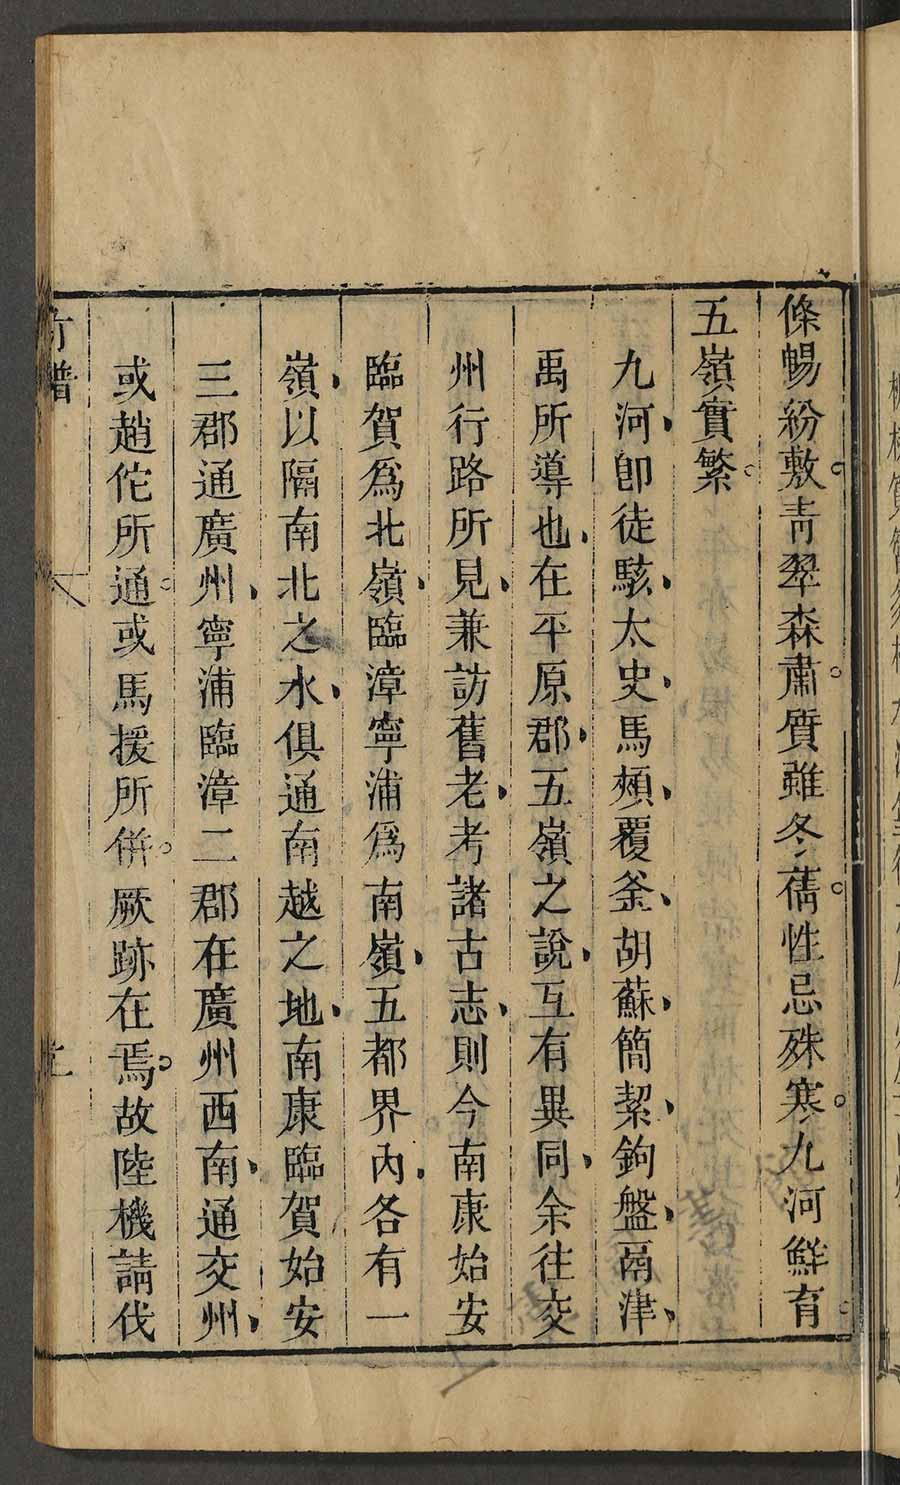 條暢紛敷。青翠森肅。質雖冬蒨。性忌殊寒。九河鮮育。
五嶺實繁。
九河、卽徒駭、太史、馬頰、覆釜、胡蘇、簡絜、鉤盤、鬲津、
禹所導也、在平原郡、五嶺之說、互有異同、余往交
州行路所見、兼訪舊老、考諸古志、則今南康始安
臨賀爲北嶺、臨漳寧浦爲南嶺、五都界內、各有一
嶺、以隔南北之水、俱通南越之地、南康臨賀始安
三郡通廣州、寧浦臨漳二郡在廣州西南、通交州、
或趙佗所通。或馬援所併。厥跡在焉。故陸機請伐
竹譜 六